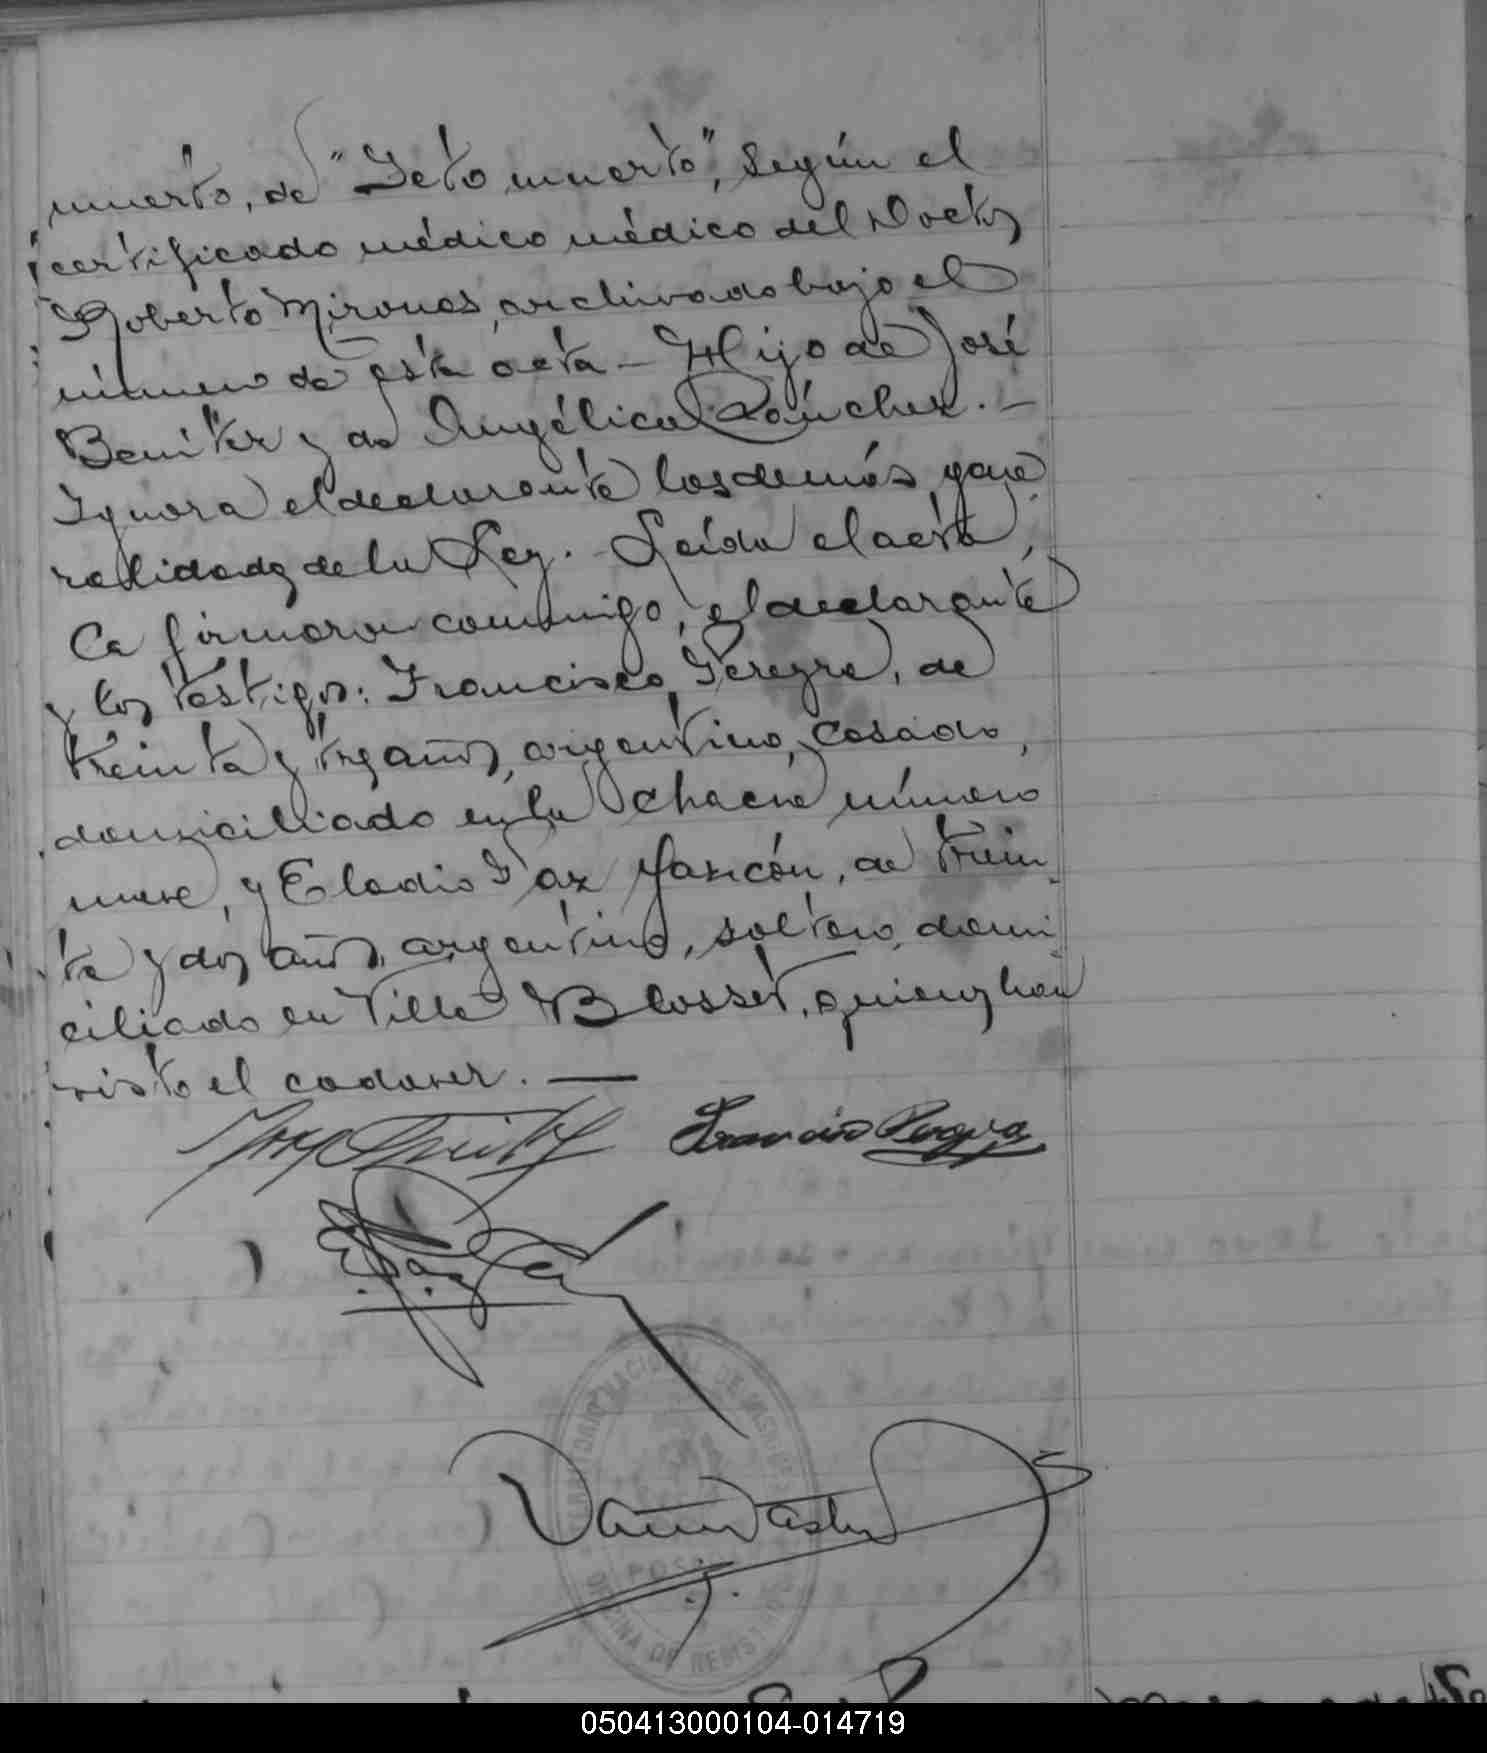 muerto, de "Feto muerto", según el
certificado médico médico del Doctor
Roberto Mirones, archivado bajo el
número de esta acta – Hijo de José
Benitez y de Angélica Sánchez. –
Ignora el declarante los demás gene
ralidades de la Ley. – Leída el acta,
la firmaron conmigo, el declarante
y los testigos: Francisco Pereyra, de
treinta y tres años, argentino, casado,
domiciliado en la chacra número
nueve, y Eladio Paz Garzón, de trein
ta y dos años, argentino, soltero, domi
ciliado en Villa Blosset, quienes han
visto el cadaver. —
Francisco Pereyra
E. Paz G
NACIONAL DE
POSADAS
OFICINA DE REGISTRO
050413000104-014719